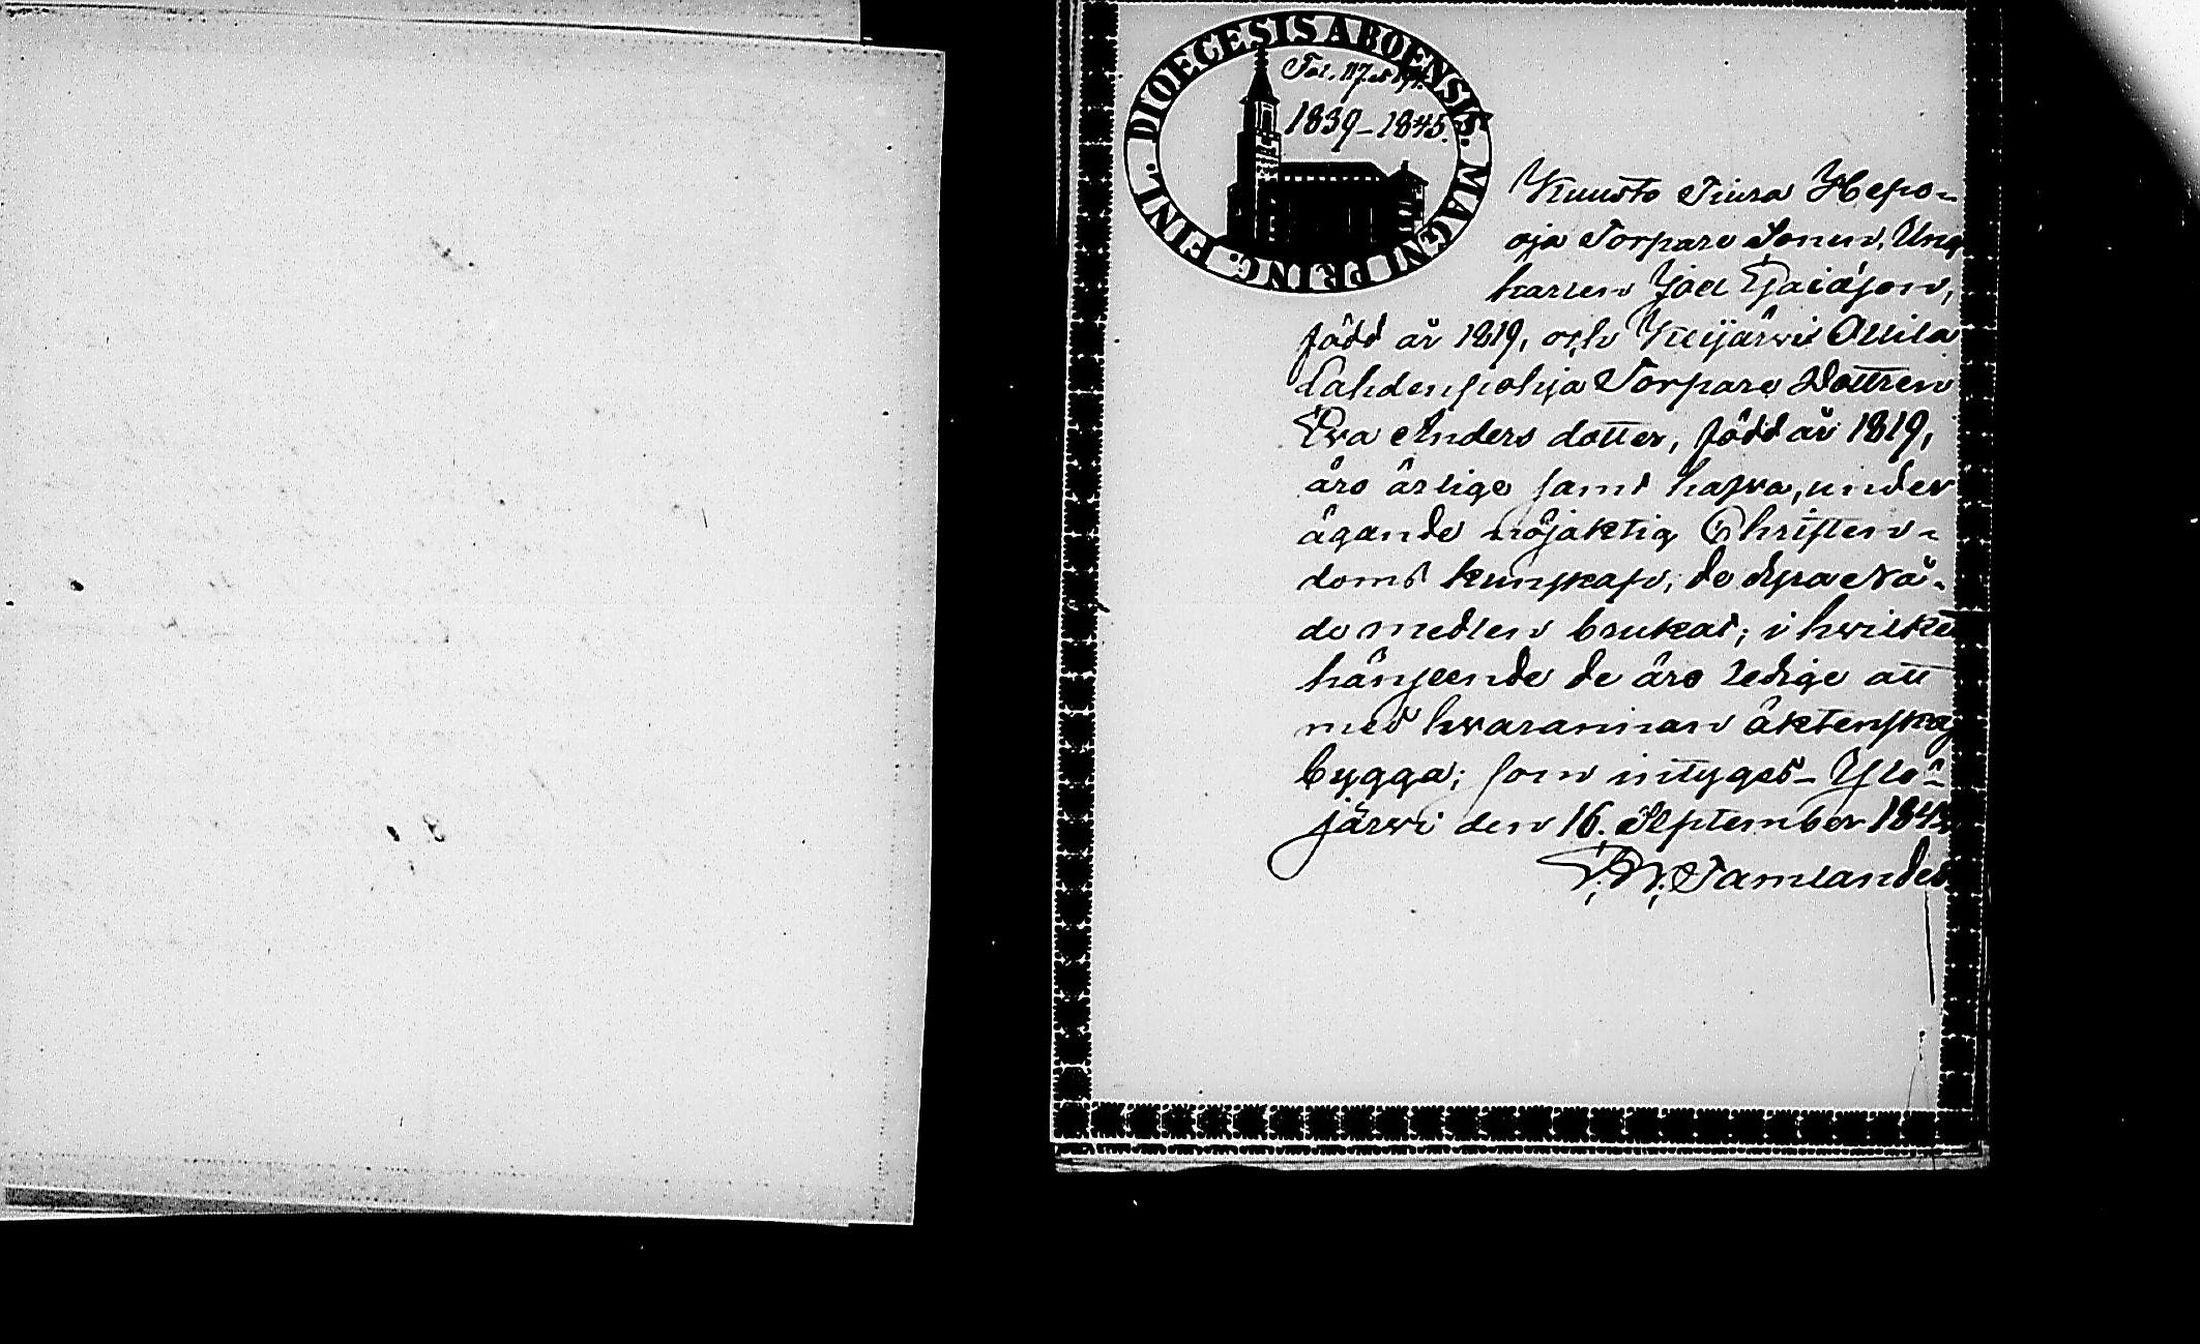 DIOECESIS ABOENSIS. MAGNI PRINC. FINL.
1839–1845.
Kuusto Tiura Hepo-
oja Torpare Sonen, Ung
karlen Joel Esaiasson,
född år 1819, och Keijärwi Ollila
Lahdenpohja Torpare Dottren
Eva Anders dotter, född år 1819,
äro ärlige samt käcka, under
ägande nöjaktig Christen-
doms kunskap, de dyra Nå-
de medlen brukat; i hwilket
hänseende de äro ledige att
med hwarannan äktenskap
bygga; som intygas – Ylö-
järwi den 16. September 184
F. W. Tamlander